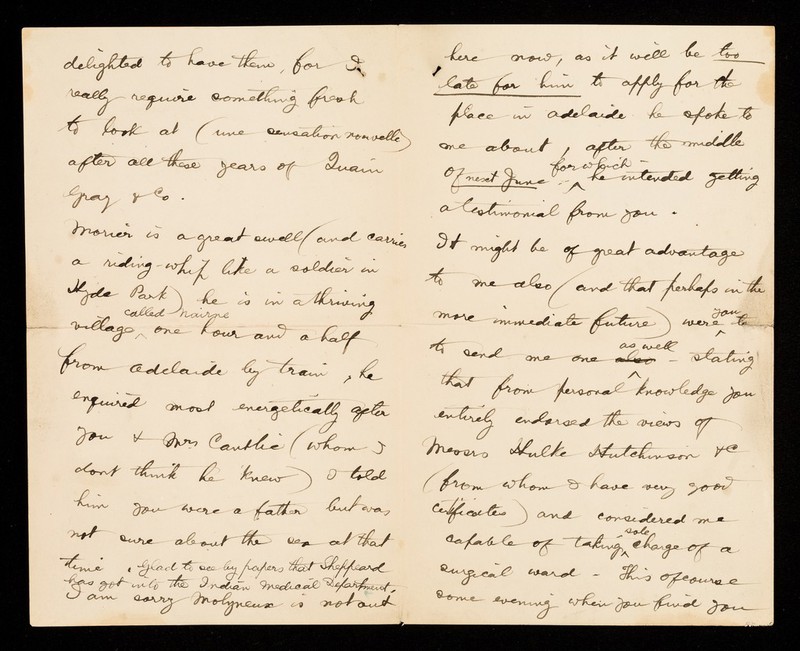 delighted to have them, for I
really require something fresh
to look at (une sensation nouvelle)
after all these years of Quain
Gray & Co.
Morier is a great swell (and carries
a riding-whip like a soldier in
Hyde Park) he is in a thriving
village called Nairne one hour and a half
from Adelaide by train, he
enquired most energetically after
you & Mrs Cantlie (whom I
dont think he knew) I told
him you were a father but was
not sure about the sex at that
time. Glad to see by papers that Sheppeard
has got into the Indian Medical Department.
I am sorry Molyneux is not out
here now, as it will be too
late for him to apply for the
place in Adelaide he spoke to
me about, after the middle
of next June - for which - he intended getting
a testimonial from you.
It might be of great advantage
to me also (and that perhaps in the
more immediate future) were you to
to send me one also as well - stating
that from personal knowledge you
entirely endorsed the views of
Messrs Hulke Hutchinson &c
(from whom I have very good
certificates) and considered me
capable of taking sole charge of a
surgical ward - This of course
some evening when you find you